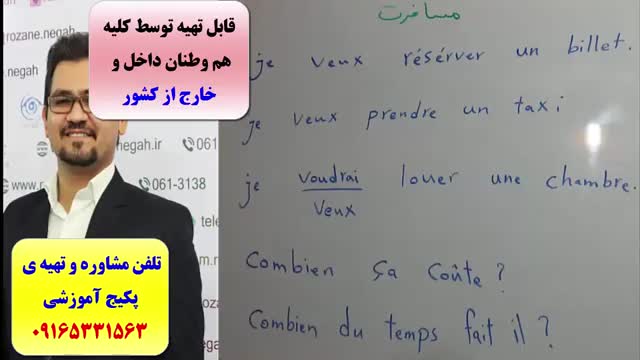 rozane.negah
.negah
negah.ir
061
061-3138
www.r
tele
قابل تهیه توسط کلیه
هم وطنان داخل و
خارج از کشور
تلفن مشاوره و تهیه ی
پکیج آموزشی
۰۹۱۶۵۳۳۱۵۶۳
مسافرت
je veux résérver un billet.
je veux prendre un taxi
je voudrai louer une chambre.
veux
Combien ça coûte ?
Combien du temps fait il ?